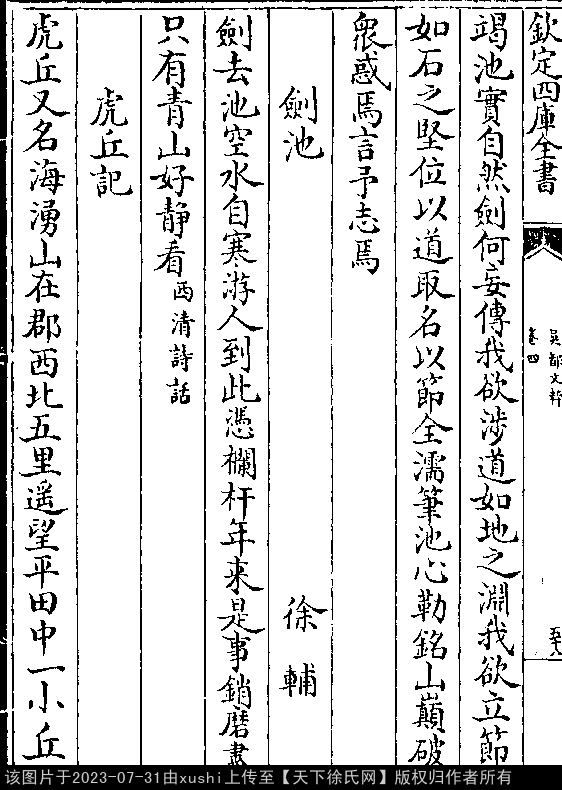 欽定四庫全書
吳都文粹
卷四
五十八
竭池實自然劍何妄傳我欲涉道如地之淵我欲立節
如石之堅位以道取名以節全濡筆池心勒銘山巔破
衆惑焉言予志焉
劍池 徐輔
劍去池空水自寒游人到此憑欄杆年來是事銷磨盡
只有青山好静看西清詩話
虎丘記
虎丘又名海湧山在郡西北五里遥望平田中一小丘
该图片于2023-07-31由xushi上传至【天下徐氏网】版权归作者所有